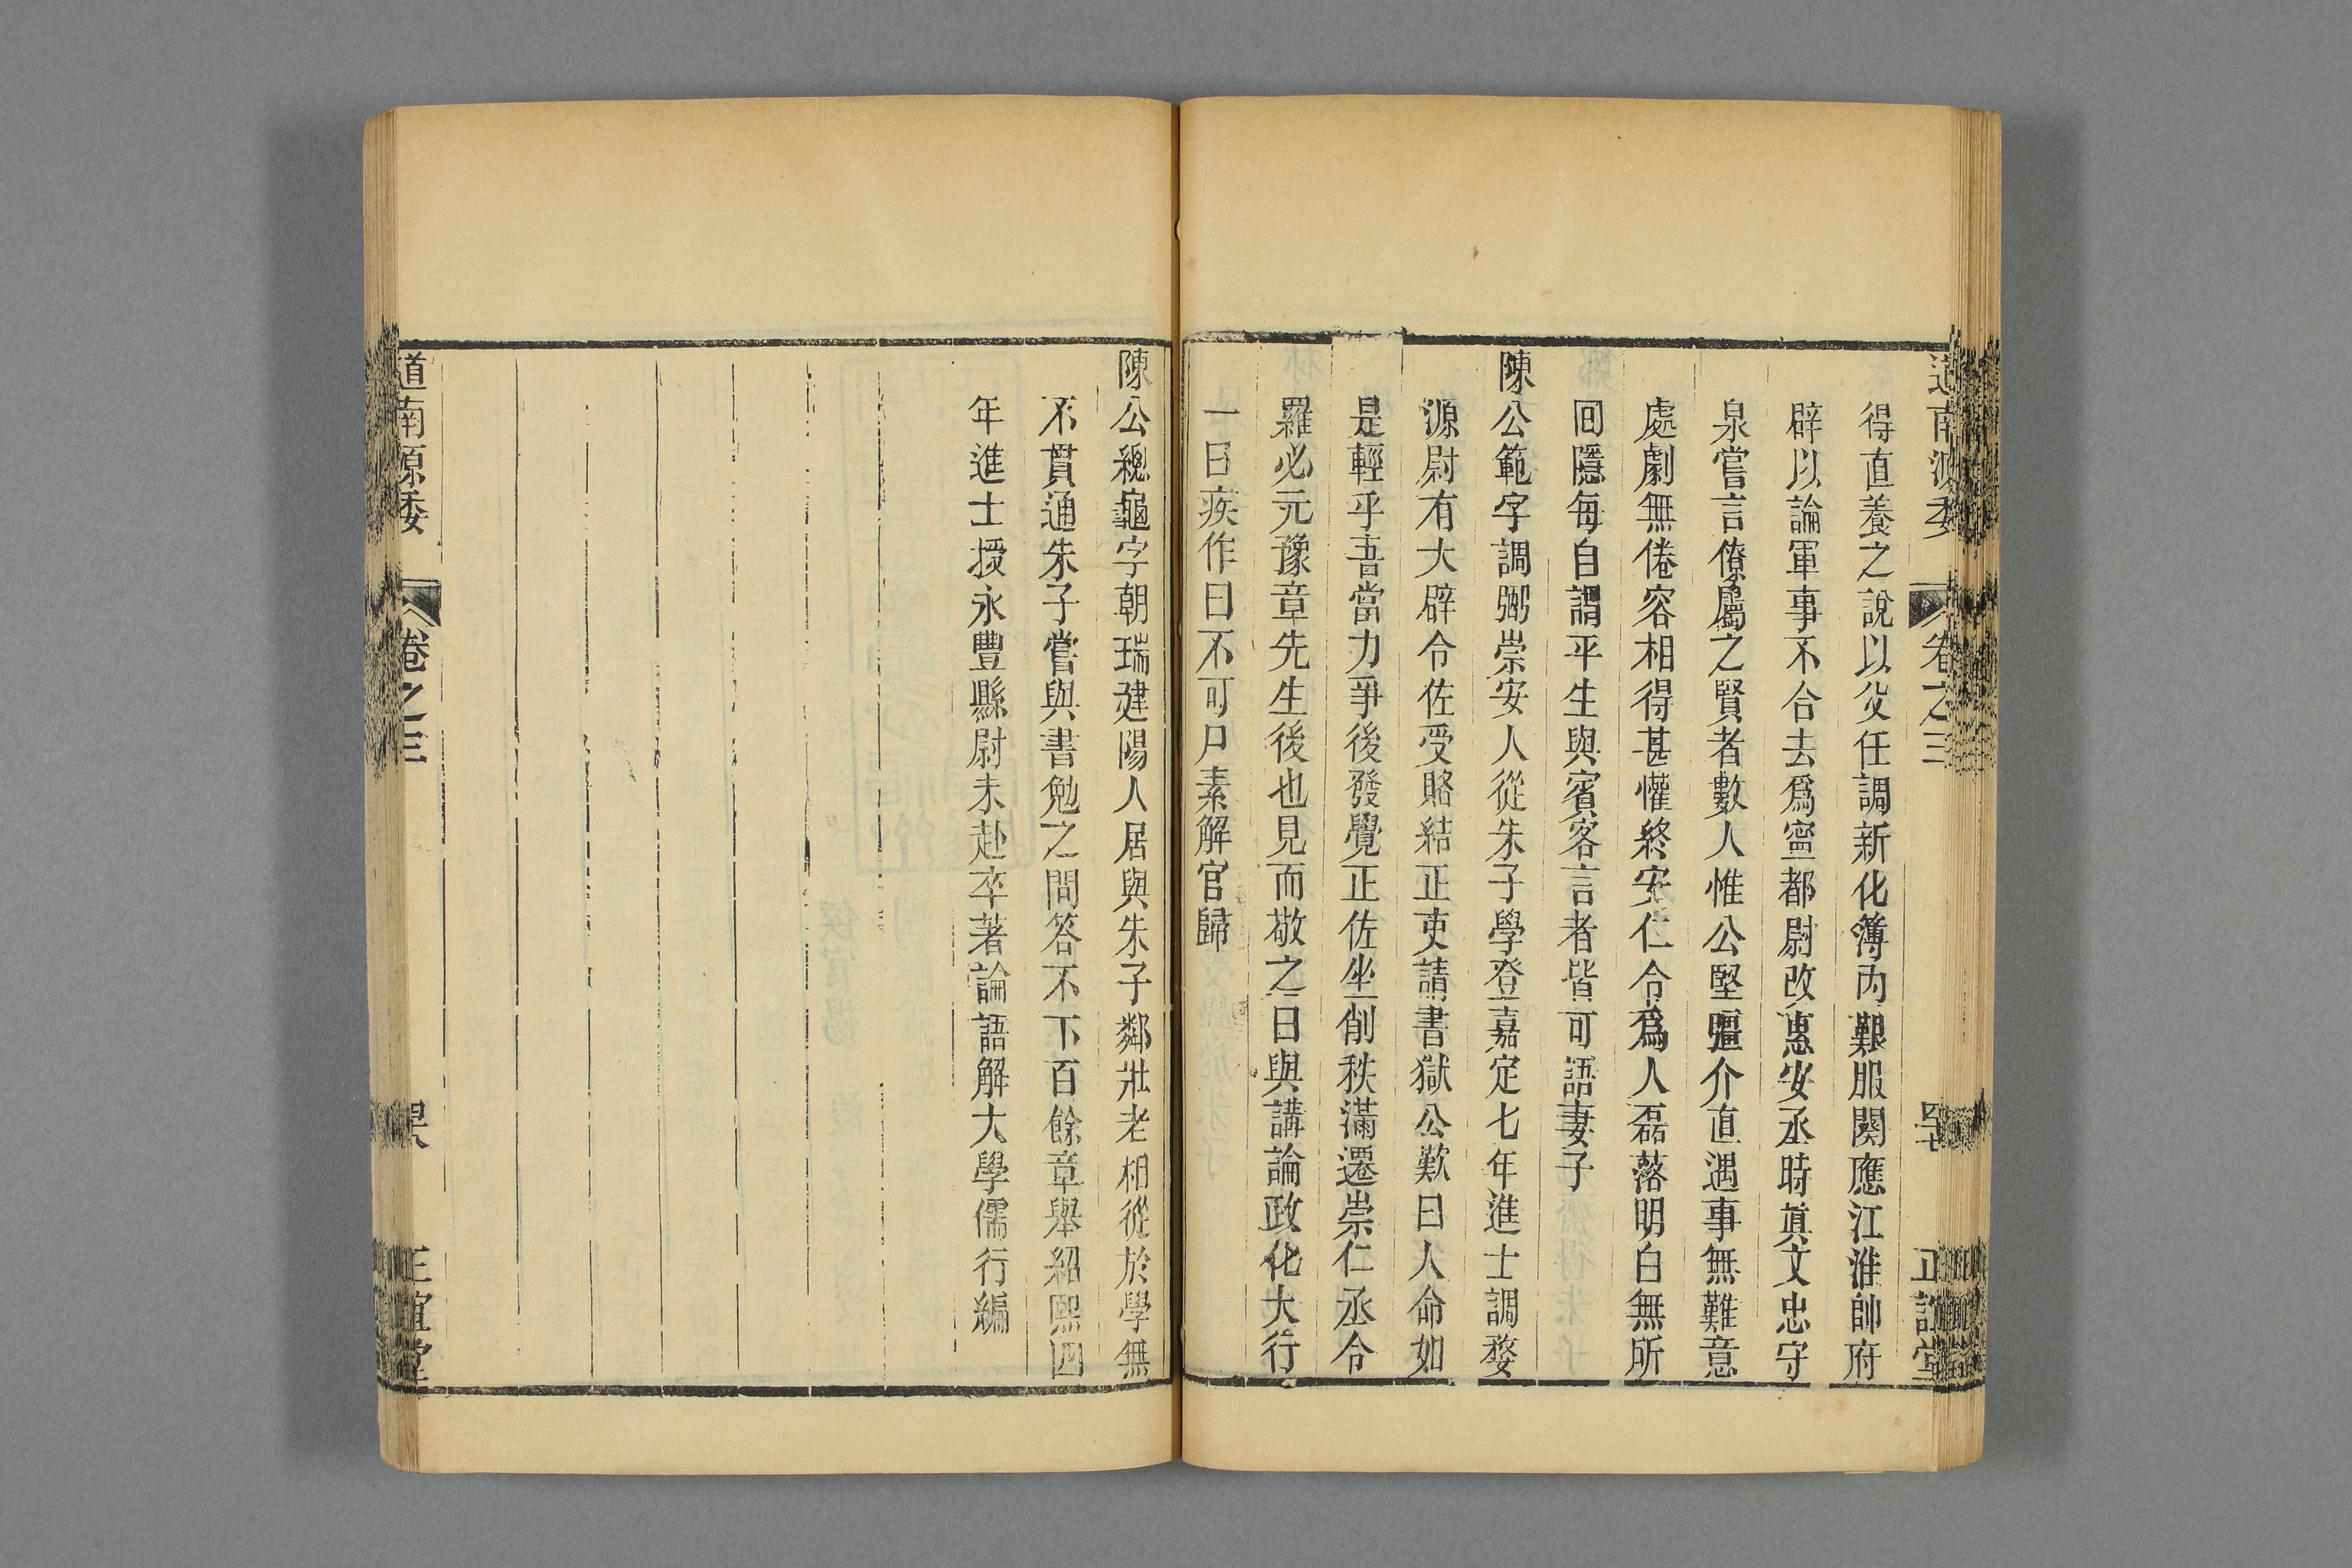 道南源委　卷之三　四七　正誼堂
得直養之說以父任調新化簿丙艱服闋應江淮帥府
辟以論軍事不合去爲寧都尉改惠安丞時眞文忠守
泉嘗言僚屬之賢者數人惟公堅彊介直遇事無難意
處劇無倦容相得甚懽終安仁令爲人磊落明白無所
回隱每自謂平生與賓客言者皆可語妻子
陳公範字調弼崇安人從朱子學登嘉定七年進士調婺
源尉有大辟令佐受賂結正吏請書獄公歎曰人命如
是輕乎吾當力爭後發覺正佐坐削秩滿遷崇仁丞令
羅必元豫章先生後也見而敬之日與講論政化大行
一日疾作曰不可尸素解官歸
陳公總龜字朝瑞建陽人居與朱子鄰壯老相從於學無
不貫通朱子嘗與書勉之問答不下百餘章舉紹熙四
年進士授永豐縣尉未赴卒著論語解大學儒行編
道南源委　卷之三　正誼堂